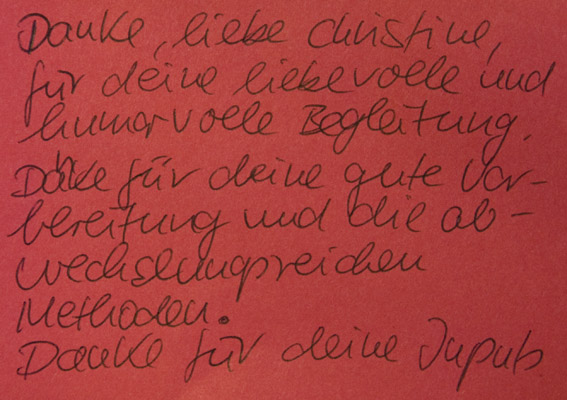 Danke, liebe Christine,
für deine liebevolle und
humorvolle Begleitung.
Danke für deine gute Vor-
bereitung und die ab-
wechslungsreichen
Methoden.
Danke für deine Inputs